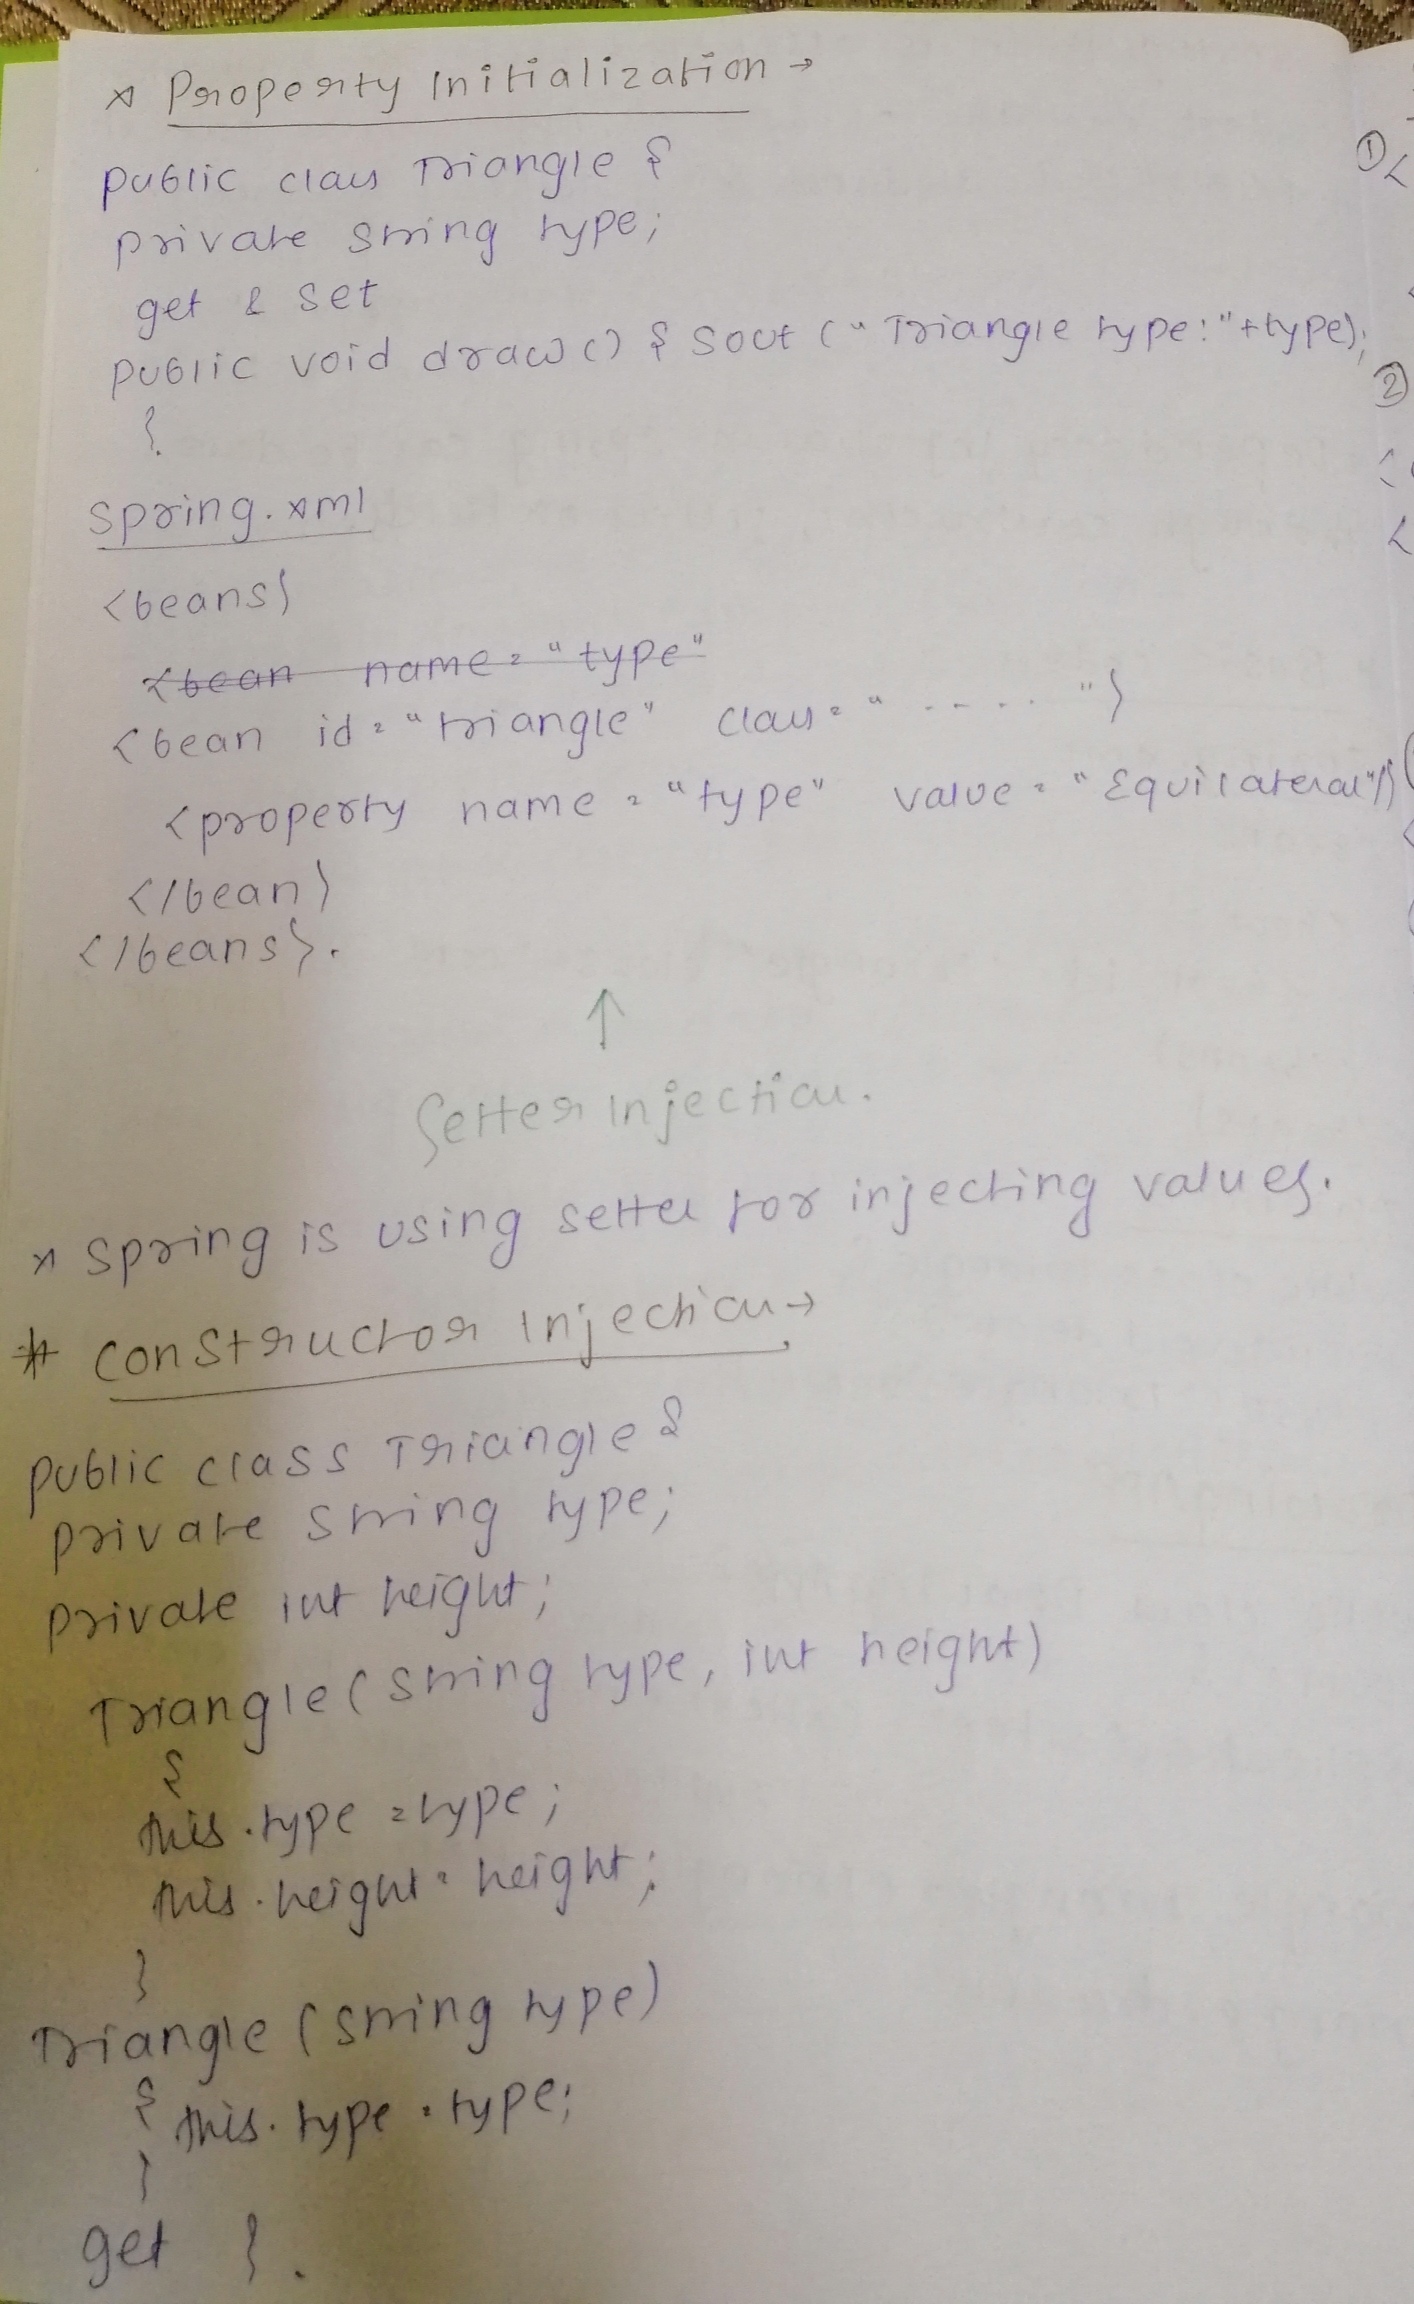 * Property Initialization →
public class Triangle {
private String type;
get & set
public void draw() { Sout ("Triangle type:"+type);
}
spring.xml
<beans>
<bean name = "type"
<bean id = "triangle" class = " - - - . . ">
<property name = "type" value = "Equilateral"/>
</bean>
</beans>.
↑
Setter Injection.
* Spring is using setter for injecting values.
* Constructor Injection →
public class Triangle {
private String type;
private int height;
Triangle(String type, int height)
{
this.type = type;
this.height = height;
}
Triangle (String type)
{ this.type = type;
}
get }.
①<
②
<